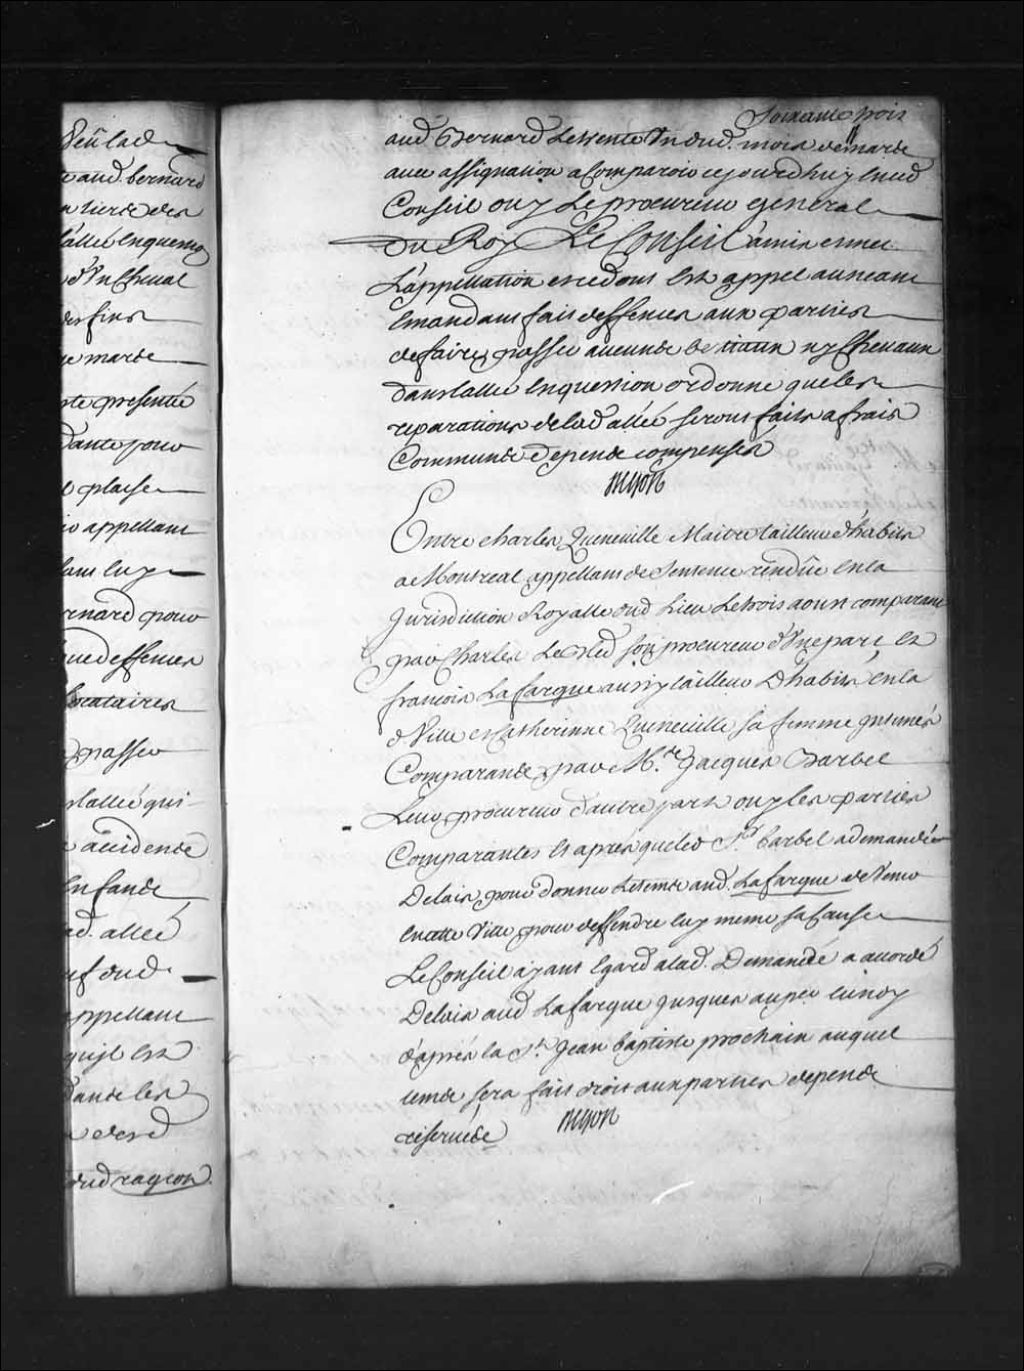 Veû lad.
aud. bernard
tierce des
l'allée en questio
d'Un Cheval
des fins
de marde
presenté
dante pour
plaise
appellant
dans luy
ernard pour
que deffences
locataires
passer
l'allée qui
accidents
enfants
ad. allée
dud.
appellant
qu'il est
dans les
dud ragcon.
Soixante trois
aud Bernard Le trente Un dud. mois de mars
avec assignation a Comparoir cejourdhuy en ced
Conseil ouy Le procureur general
du Roy Le Conseil a mis et met
L'appellation et ce dont Est appel au neant
Emandant fait deffences aux parties
de faire passer aucuns bestiaux ny Chevaux
dans l'allée en question ordonne que les
reparations de lad allée seront faits a frais
Communs depens compensés
Begon
Entre charles Queneville Maitre tailleur d'habits
a Montreal appellant de Sentence rendûe en la
Jurisdiction Royalle dud Lieu Le trois aoust comparant
par Charles son procureur d'Une part, Et
francois La farque aussy tailleur D'habits en la
d. Ville et Catherinne Queneville sa femme Intimés
Comparants par M.re Jacques Barbel
Leur procureur d'autre part ouy les parties
Comparantes Et apres que led S.r barbel a demandé
Delais pour donner Le tems aud. La farque de Venir
en cette Ville pour deffendre luy meme sa Cause
Le Conseil ayant Egard a lad. Demande a accordé
Delais aud La farque Jusques au
d'après la S.t Jean baptiste prochain auquel
tems sera fait droit aux parties depens
reservés Begon